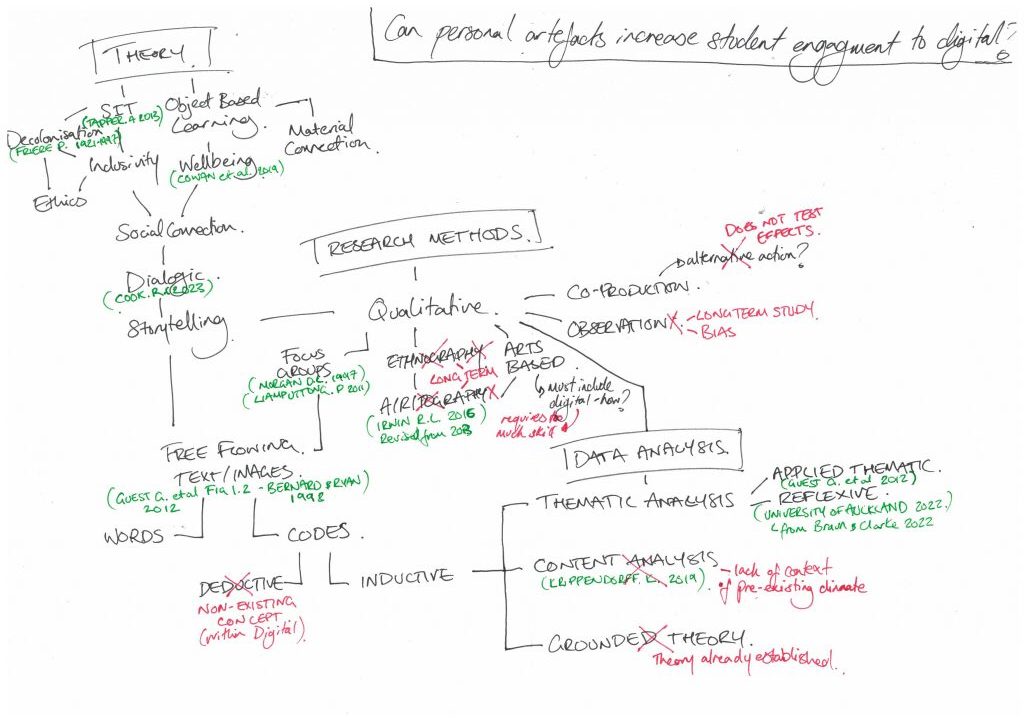 Can personal artefacts increase student engagment to digital?
THEORY
SIT
(TAPPER. A 2013)
Object Based
Learning.
Material
Connection.
Decolonisation
(FRIERE P. 1921-1997)
Inclusivity
Wellbeing
(COWAN et al. 2019)
Ethics
Social Connection.
Dialogic.
(COOK. R. 2023)
Storytelling
RESEARCH METHODS.
Qualitative.
DOES NOT TEST
EFFECTS.
alternative action?
CO-PRODUCTION.
OBSERVATION
LONG TERM STUDY.
BIAS
FOCUS
GROUPS
(MORGAN D.L. 1997)
(LIAMPUTTONG. P 2011)
ETHNOGRAPHY
LONG TERM
A/R/TOGRAPHY
(IRWIN R.L. 2016
Revised from 2013)
ARTS
BASED
must include
digital - how?
requires too
much skill
FREE FLOWING
TEXT/IMAGES.
(GUEST G. et al Fig 1.2 - BERNARD & RYAN)
2012
1998
WORDS
CODES.
DEDUCTIVE
NON-EXISTING
CONCEPT
(within Digital)
INDUCTIVE
DATA ANALYSIS.
THEMATIC ANALYSIS
APPLIED THEMATIC.
(GUEST G. et al 2012)
REFLEXIVE.
(UNIVERSITY OF AUCKLAND 2022.)
from Braun & Clarke 2022
CONTENT ANALYSIS
(KRIPPENDORFF. K. 2019)
lack of context
of pre-existing climate
GROUNDED THEORY.
Theory already established.